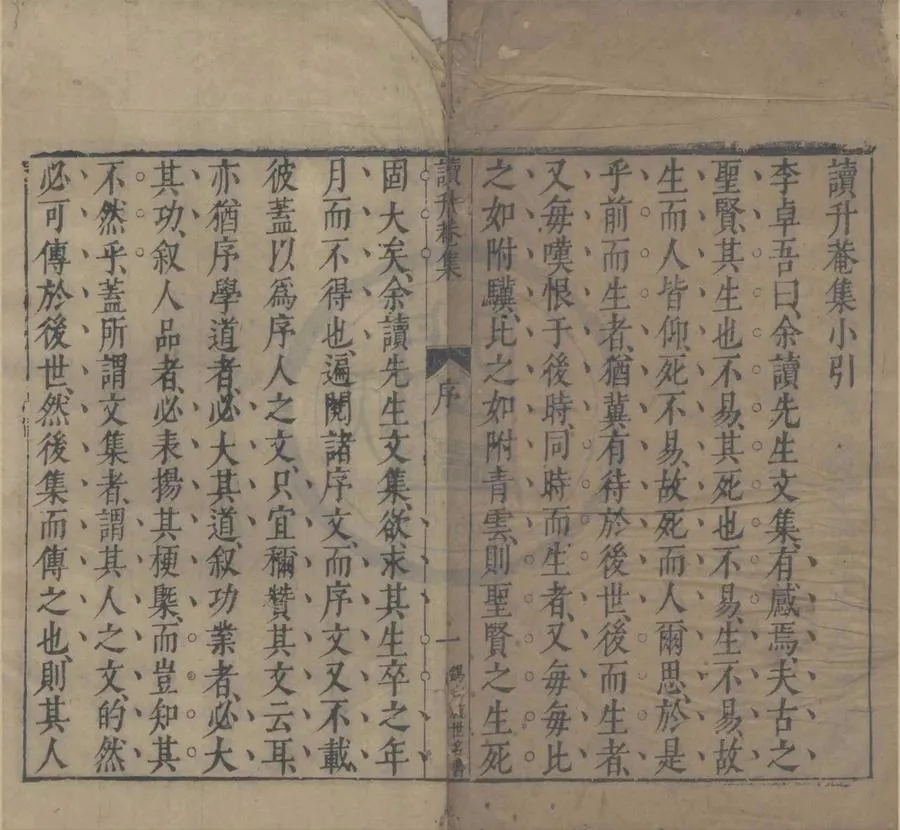 讀升菴集小引
李卓吾曰、余讀先生文集、有感焉、夫古之
聖賢、其生也不易、其死也不易、生不易、故
生而人皆仰、死不易、故死而人爾思、於是
乎前而生者、猶冀有待於後世、後而生者、
又每嘆恨于後時、同時而生者、又每每比
之如附驥、比之如附青雲、則聖賢之生死
讀升菴集
序
一
世名書
固大矣、余讀先生文集、欲求其生卒之年
月而不得也、遍閱諸序文、而序文又不載、
彼蓋以爲序人之文、只宜稱贊其文云耳、
亦猶序學道者、必大其道、叙功業者、必大
其功、叙人品者、必表揚其梗槩、而豈知其
不然乎、蓋所謂文集者、謂其人之文、的然
必可傳於後世、然後集而傳之也、則其人